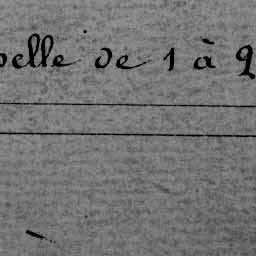 pelle de 1 à 2